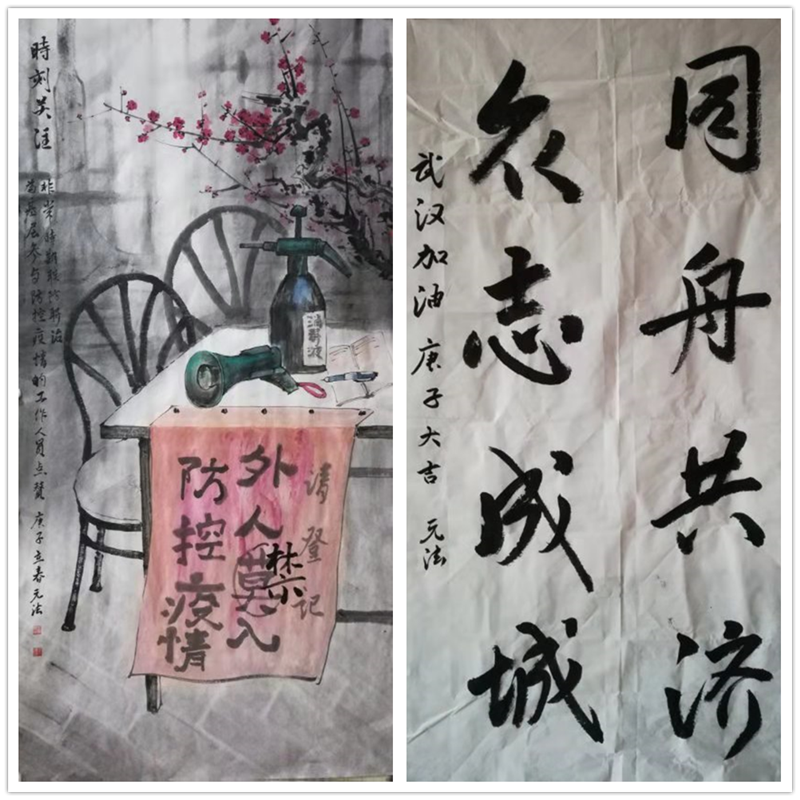 時刻关注
非常时期联防群治
为基层参与防控疫情的工作人员点赞 庚子立春元法
消毒液
请登记
外人莫入
禁
防控疫情
同舟共济
众志成城
武汉加油 庚子大吉 元法